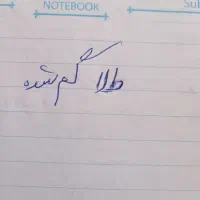 NOTEBOOK
Sub
طلا گم شده